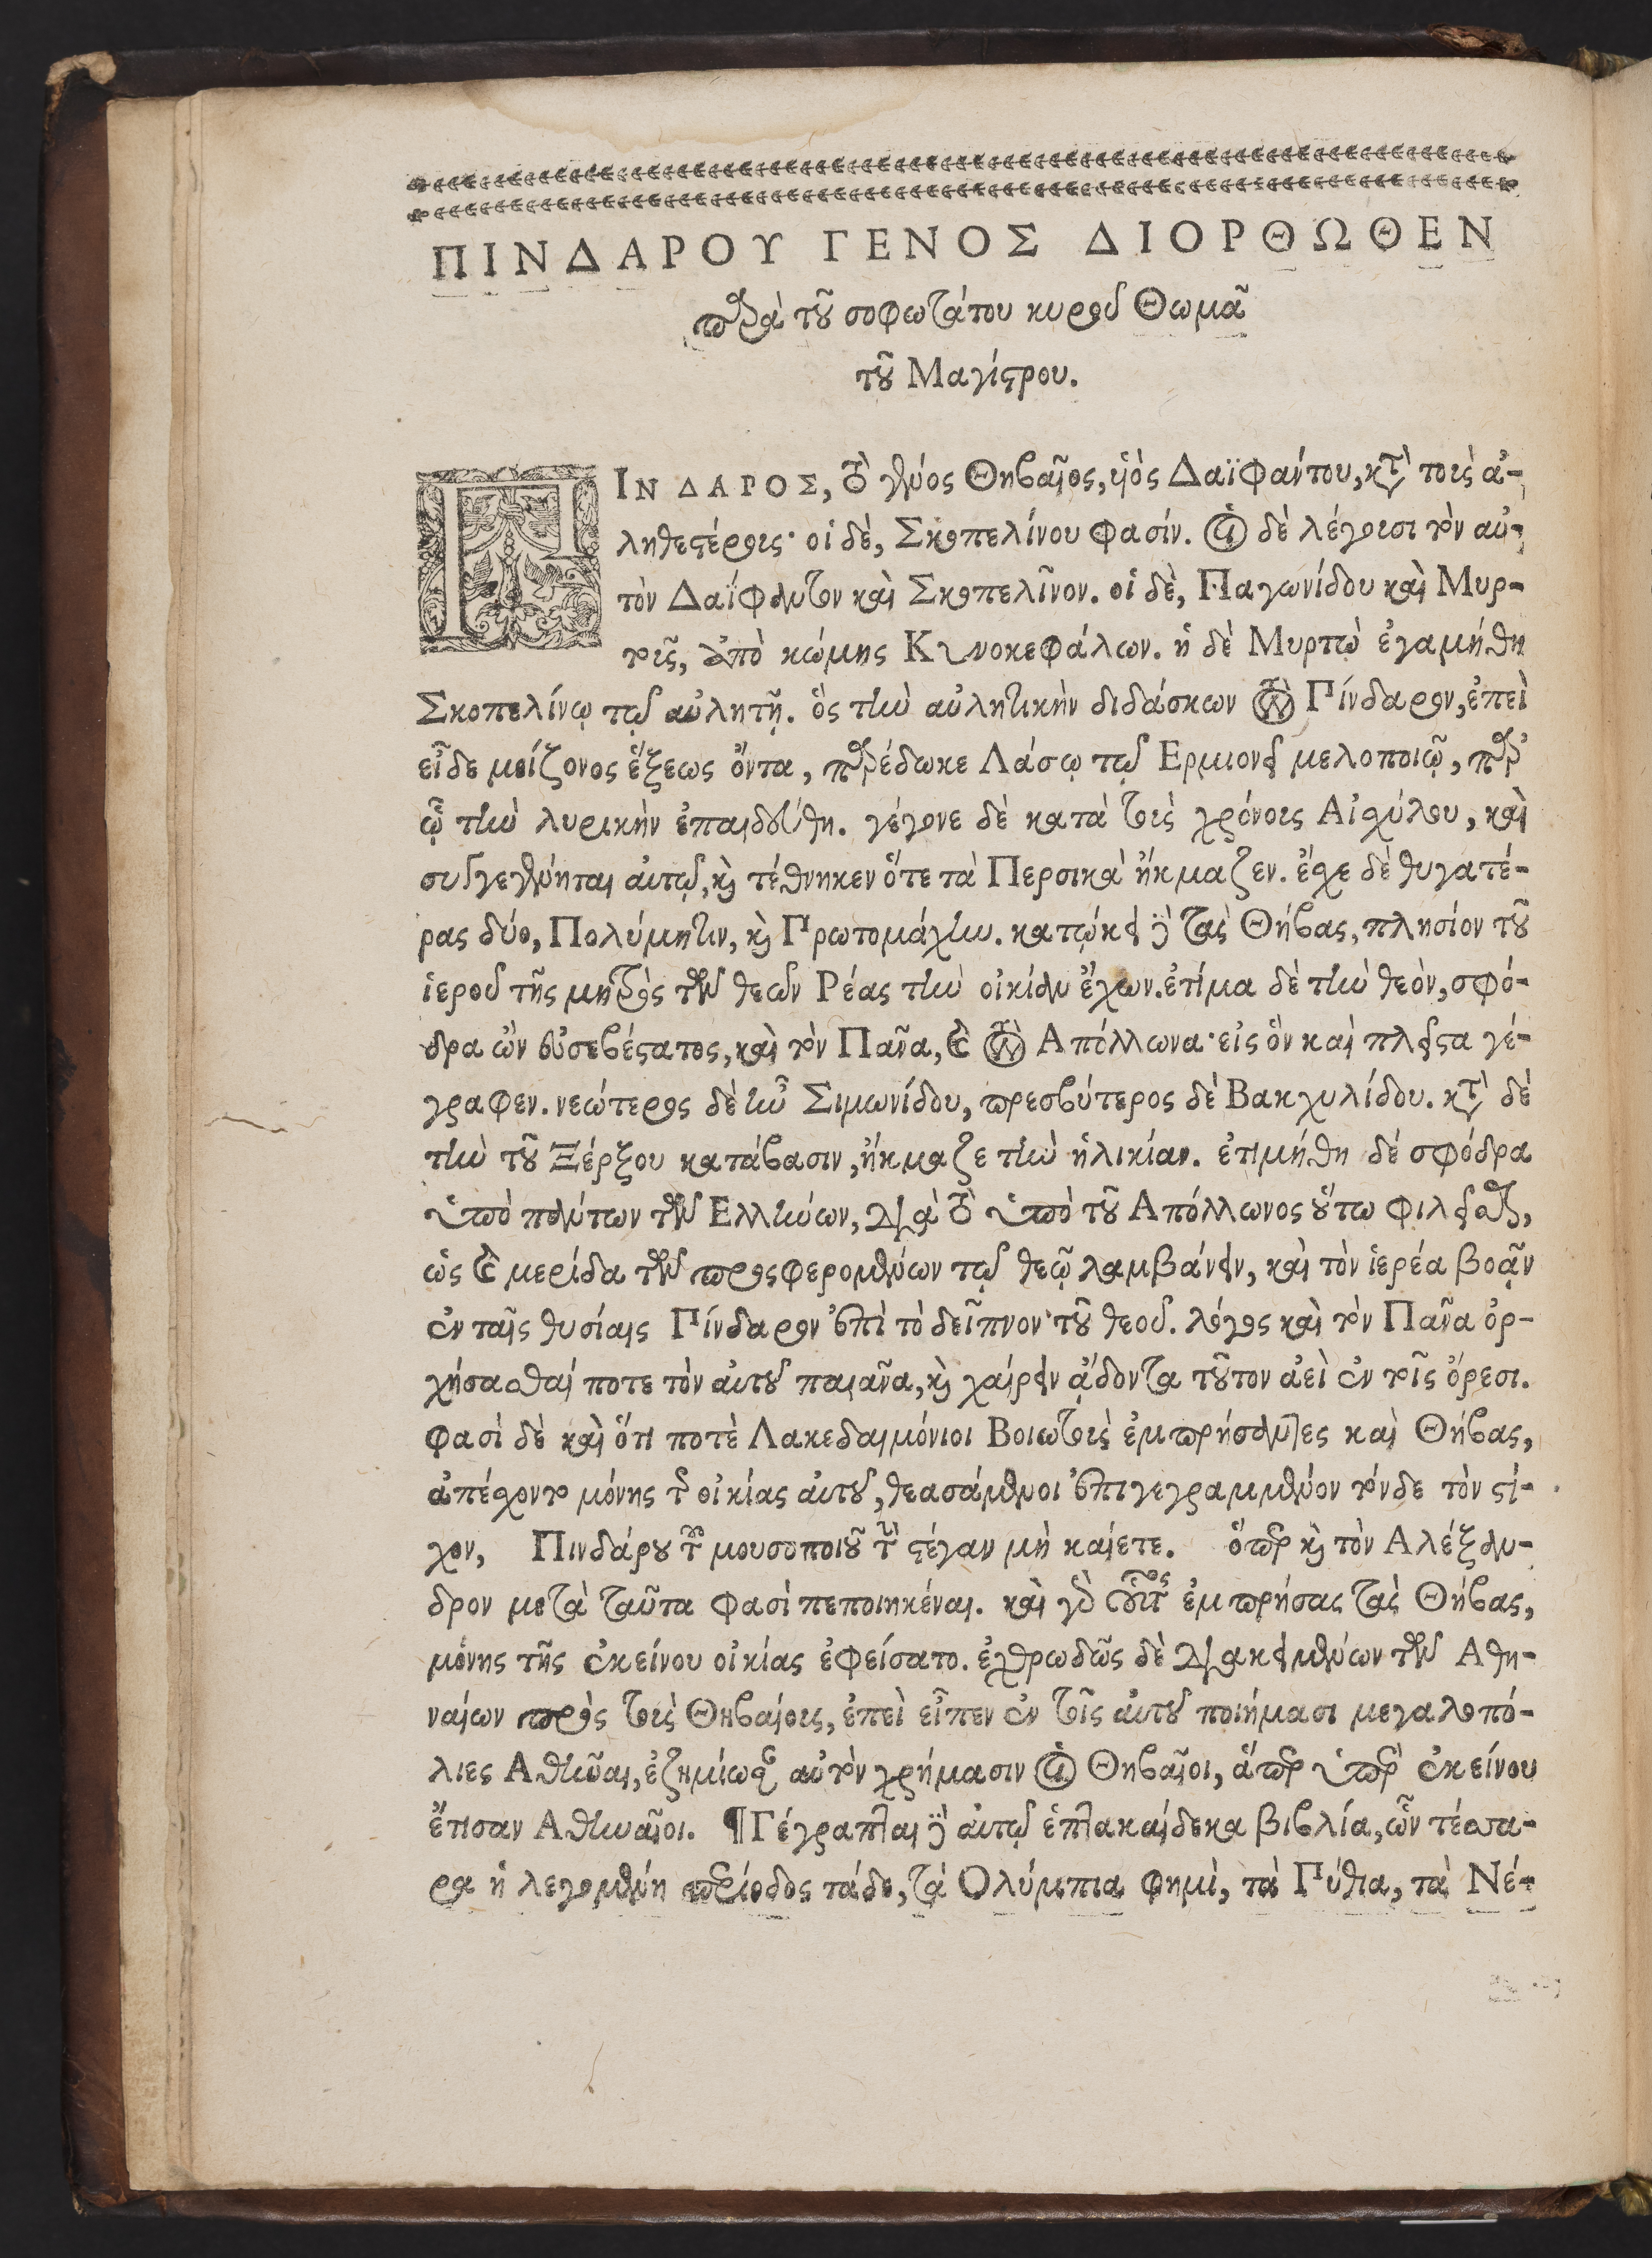 ΠΙΝΔΑΡΟΥ ΓΕΝΟΣ ΔΙΟΡΘΩΘΕΝ
παρὰ τοῦ σοφωτάτου κυροῦ Θωμᾶ
τοῦ Μαγίστρου.
ΠΙΝΔΑΡΟΣ, τὸ γένος Θηβαῖος, υἱὸς Δαϊφάντου, κατὰ τοὺς ἀ-
ληθεστέρους· οἱ δὲ, Σκοπελίνου φασίν. οἱ δὲ λέγουσι τὸν αὐ-
τὸν Δαΐφαντον καὶ Σκοπελῖνον. οἱ δὲ, Παγωνίδου καὶ Μυρ-
τοῦς, ἀπὸ κώμης Κυνοκεφάλων. ἡ δὲ Μυρτὼ ἐγαμήθη
Σκοπελίνῳ τῷ αὐλητῇ. ὃς τὴν αὐλητικὴν διδάσκων τὸν Πίνδαρον, ἐπεὶ
εἶδε μείζονος ἕξεως ὄντα, παρέδωκε Λάσῳ τῷ Ερμιονεῖ μελοποιῷ, παρ'
ᾧ τὴν λυρικὴν ἐπαιδεύθη. γέγονε δὲ κατὰ τοὺς χρόνους Αἰσχύλου, καὶ
συγγεγένηται αὐτῷ, καὶ τέθνηκεν ὅτε τὰ Περσικὰ ἤκμαζεν. ἔσχε δὲ θυγατέ-
ρας δύο, Πολύμητιν, καὶ Πρωτομάχην. κατῴκει δὲ τὰς Θήβας, πλησίον τοῦ
ἱεροῦ τῆς μητρὸς τῶν θεῶν Ρέας τὴν οἰκίαν ἔχων. ἐτίμα δὲ τὴν θεὸν, σφό-
δρα ὢν εὐσεβέστατος, καὶ τὸν Πᾶνα, καὶ τὸν Απόλλωνα· εἰς ὃν καὶ πλεῖστα γέ-
γραφεν. νεώτερος δὲ ἦν Σιμωνίδου, πρεσβύτερος δὲ Βακχυλίδου. κατὰ δὲ
τὴν τοῦ Ξέρξου κατάβασιν, ἤκμαζε τὴν ἡλικίαν. ἐτιμήθη δὲ σφόδρα
ὑπὸ πάντων τῶν Ελλήνων, διὰ τὸ ὑπὸ τοῦ Απόλλωνος οὕτω φιλεῖσθαι,
ὡς καὶ μερίδα τῶν προσφερομένων τῷ θεῷ λαμβάνειν, καὶ τὸν ἱερέα βοᾷν
ἐν ταῖς θυσίαις Πίνδαρον ἐπὶ τὸ δεῖπνον τοῦ θεοῦ. λόγος καὶ τὸν Πᾶνα ὀρ-
χήσασθαί ποτε τὸν αὐτοῦ παιᾶνα, καὶ χαίρειν ᾄδοντα τοῦτον ἀεὶ ἐν τοῖς ὄρεσι.
φασὶ δὲ καὶ ὅτι ποτὲ Λακεδαιμόνιοι Βοιωτοὺς ἐμπρήσαντες καὶ Θήβας,
ἀπέσχοντο μόνης τῆς οἰκίας αὐτοῦ, θεασάμενοι ἐπιγεγραμμένον τόνδε τὸν στί-
χον, Πινδάρου τοῦ μουσοποιοῦ τὴν στέγαν μὴ καίετε. ὅπερ καὶ τὸν Αλέξαν-
δρον μετὰ ταῦτα φασὶ πεποιηκέναι. καὶ γὰρ οὗτος ἐμπρήσας τὰς Θήβας,
μόνης τῆς ἐκείνου οἰκίας ἐφείσατο. ἐχθρωδῶς δὲ διακειμένων τῶν Αθη-
ναίων πρὸς τοὺς Θηβαίους, ἐπεὶ εἶπεν ἐν τοῖς αὐτοῦ ποιήμασι μεγαλοπό-
λιες Αθῆναι, ἐζημίωσαν αὐτὸν χρήμασιν οἱ Θηβαῖοι, ἅπερ ὑπὲρ ἐκείνου
ἔτισαν Αθηναῖοι. ¶ Γέγραπται δὲ αὐτῷ ἑπτακαίδεκα βιβλία, ὧν τέσσα-
ρα ἡ λεγομένη περίοδος τάδε, τὰ Ολύμπια φημὶ, τὰ Πύθια, τὰ Νέ-